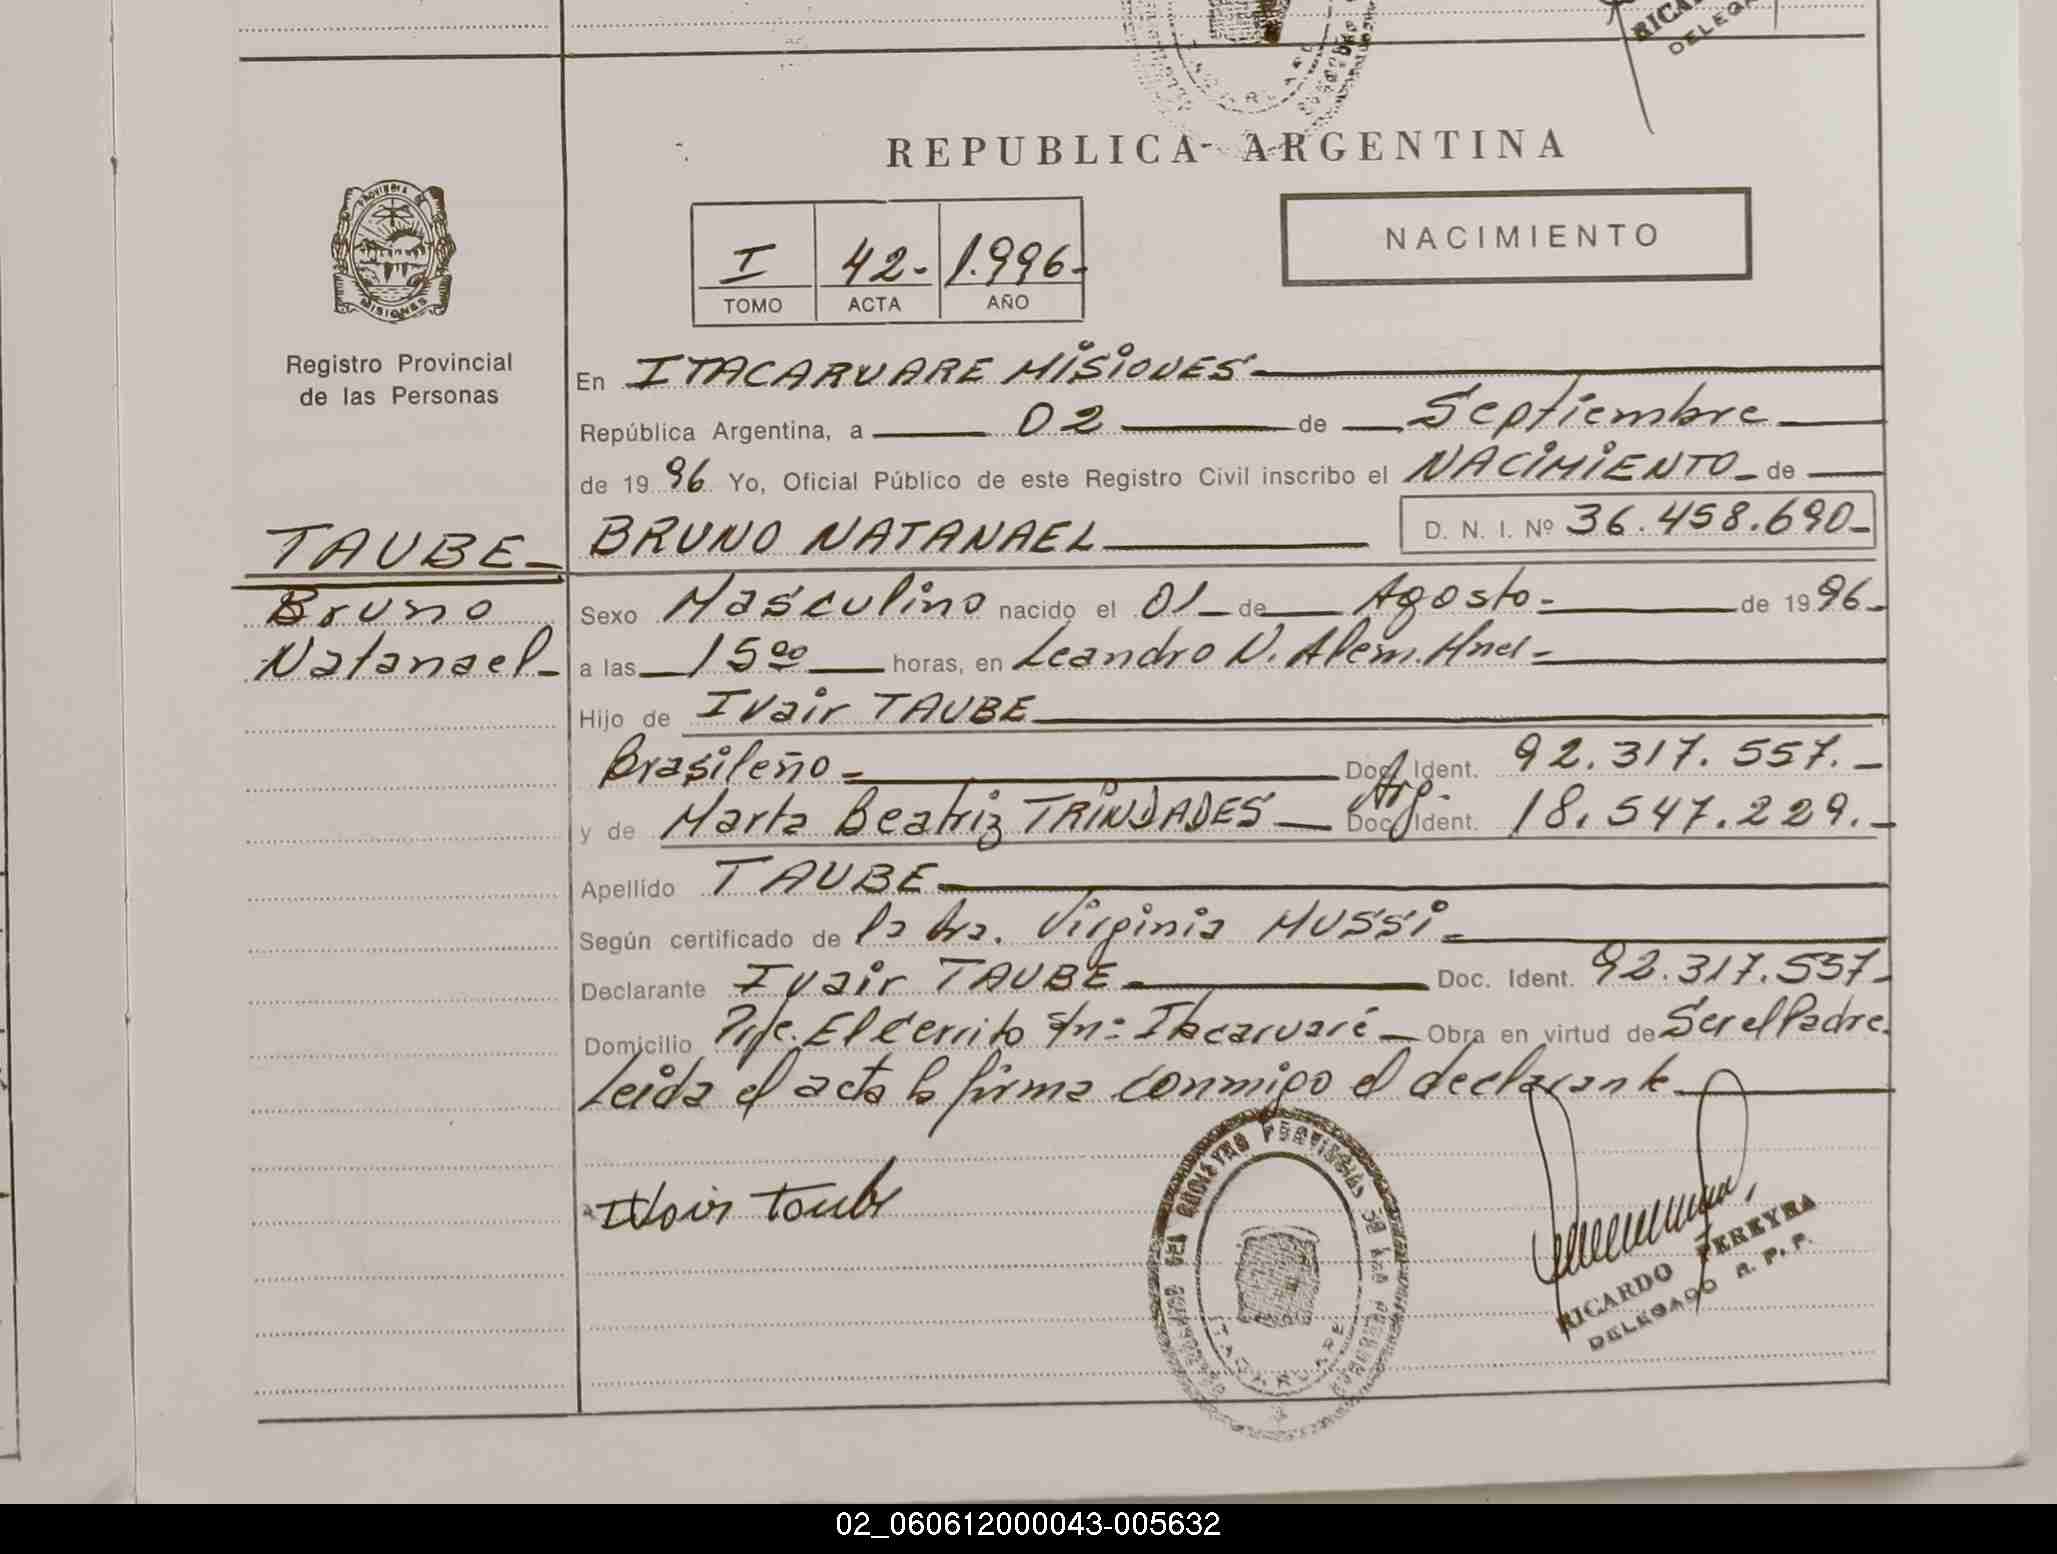 RICA
DELEGA
REPUBLICA ARGENTINA
PROVINCIA DE
MISIONES
Registro Provincial
de las Personas
I 42- 1.996-
TOMO ACTA AÑO
NACIMIENTO
En ITACARUARE MISIONES
República Argentina, a 02 de Septiembre
de 1996 Yo, Oficial Público de este Registro Civil inscribo el NACIMIENTO de
TAUBE BRUNO NATANAEL D. N. I. Nº 36.458.690-
Bruno Sexo Masculino nacido el 01 de Agosto- de 1996-
Natanael- a las 15 00 horas, en Leandro N. Alem. Mnes-
Hijo de Ivair TAUBE
Brasileño Doc. Ident. 92.317.557.-
Arg.
y de Marta Beatriz TRINDADES Doc. Ident. 18.547.229.-
Apellido TAUBE
Según certificado de la Dra. Virginia MUSSI
Declarante Ivair TAUBE Doc. Ident. 92.317.557-
Domicilio Pje. El Cerrito s/nº Itacaruaré Obra en virtud de Ser el Padre.
Leida el acta la firma conmigo el declarante
Ivair Taube
REGISTRO PROVINCIAL DE LAS PERSONAS
ITACARUARE
RICARDO PEREYRA
DELEGADO R. P. P.
02_060612000043-005632